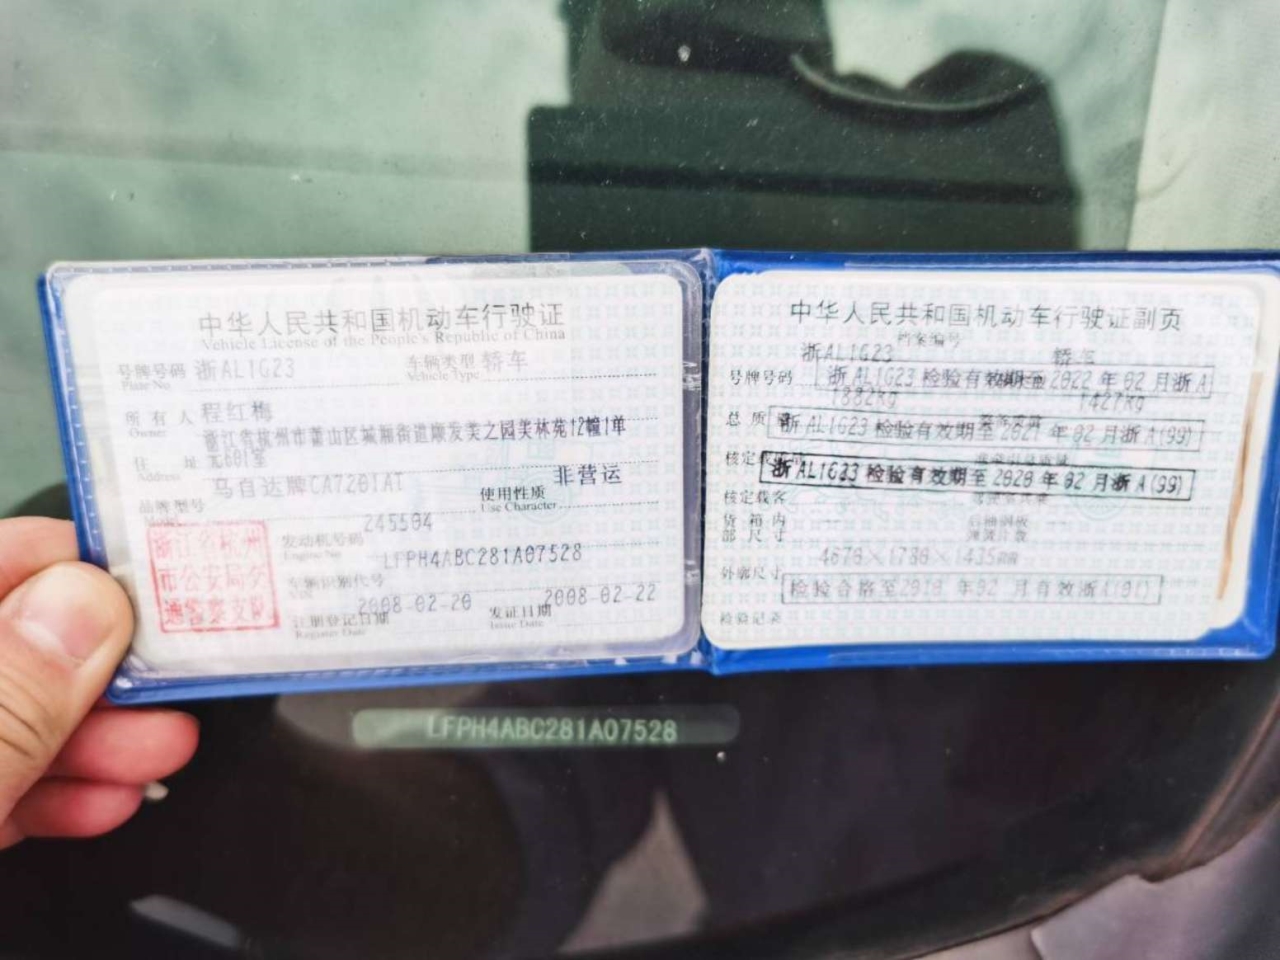 中华人民共和国机动车行驶证
Vehicle License of the People's Republic of China
号牌号码 浙AL1G23 车辆类型 轿车
Plate No. Vehicle Type
所有人 程红梅
Owner
浙江省杭州市萧山区城厢街道顺发美之园美林苑12幢1单
住址 元601室
Address
品牌型号 马自达牌CA7201AT 使用性质 非营运
Use Character
发动机号码 245504
Engine No.
车辆识别代号 LFPH4ABC281A07528
VIN
注册登记日期 2008-02-20 发证日期 2008-02-22
Register Date Issue Date
浙江省杭州
市公安局交
通警察支队
中华人民共和国机动车行驶证副页
档案编号
浙AL1G23 轿车
号牌号码 浙AL1G23 检验有效期至2022年02月浙A
1882Kg 1427Kg
总质量 浙AL1G23 检验有效期至2021年02月浙A(99)
浙AL1G23 检验有效期至2020年02月浙A(99)
核定载客
货箱内
部尺寸
后轴钢板
弹簧片数
4670×1780×1435mm
外廓尺寸
检验合格至2010年02月有效浙A(01)
检验记录
LFPH4ABC281A07528